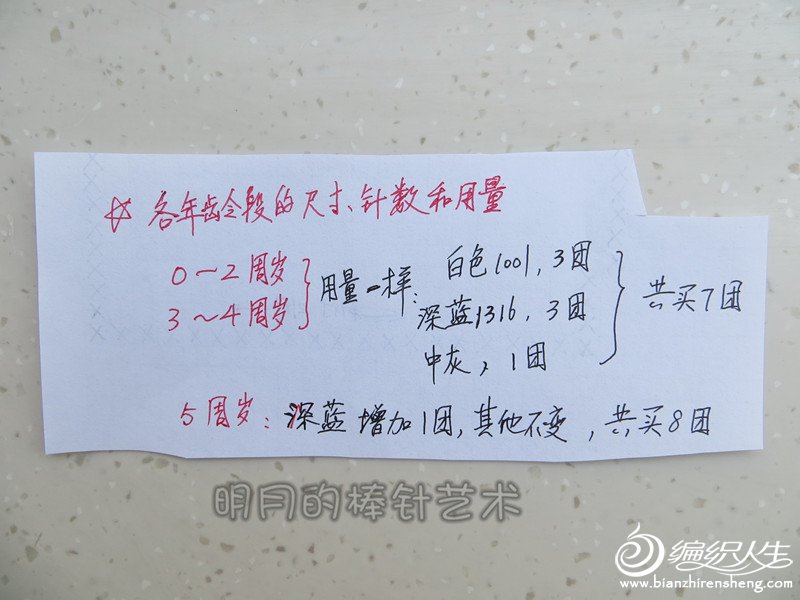 ☆ 各年龄段的尺寸、针数和用量
0～2周岁
3～4周岁
用量一样:
白色1001,3团
深蓝1316,3团
中灰,1团
共买7团
5周岁:深蓝增加1团,其他不变,共买8团
明月的棒针艺术
编织人生
www.bianzhirensheng.com